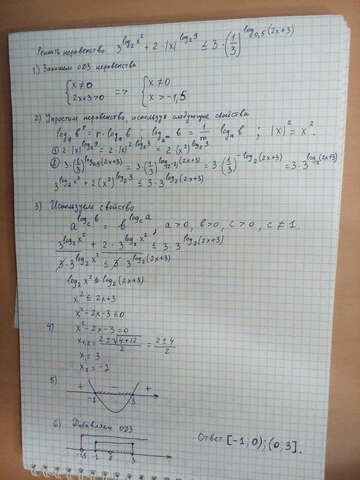 Решить неравенство 3^{log_2 x^2} + 2·|x|^{log_2 9} ≤ 3·(1/3)^{log_{0,5}(2x+3)}
1) Запишем ОДЗ неравенства
{x≠0 {x≠0
{2x+3>0 {x>-1,5
2) Упростим неравенство, используя следующие свойства
log_a b^n = n·log_a b ; log_{a^m} b = 1/m log_a b ; |x|^2 = x^2.
① 2·|x|^{log_2 9} = 2·|x|^{2·log_2 3} = 2(x^2)^{log_2 3}
② 3·(1/3)^{log_{0,5}(2x+3)} = 3·(1/3)^{log_{2^{-1}}(2x+3)} = 3·(1/3)^{-log_2(2x+3)} = 3·3^{log_2(2x+3)}
3^{log_2 x^2} + 2(x^2)^{log_2 3} ≤ 3·3^{log_2(2x+3)}
3) Используем свойство
a^{log_c b} = b^{log_c a}, a>0, b>0, c>0, c≠1.
3^{log_2 x^2} + 2·3^{log_2 x^2} ≤ 3·3^{log_2(2x+3)}
3·3^{log_2 x^2} ≤ 3·3^{log_2(2x+3)}
log_2 x^2 ≤ log_2(2x+3)
x^2 ≤ 2x+3
x^2-2x-3≤0
4) x^2-2x-3=0
x_{1,2} = (2±√(4+12))/2 = (2±4)/2
x_1 = 3
x_2 = -1
5) + - +
-1 3
6) Добавляем ОДЗ
-1,5 -1 0 3
Ответ [-1; 0); (0; 3].